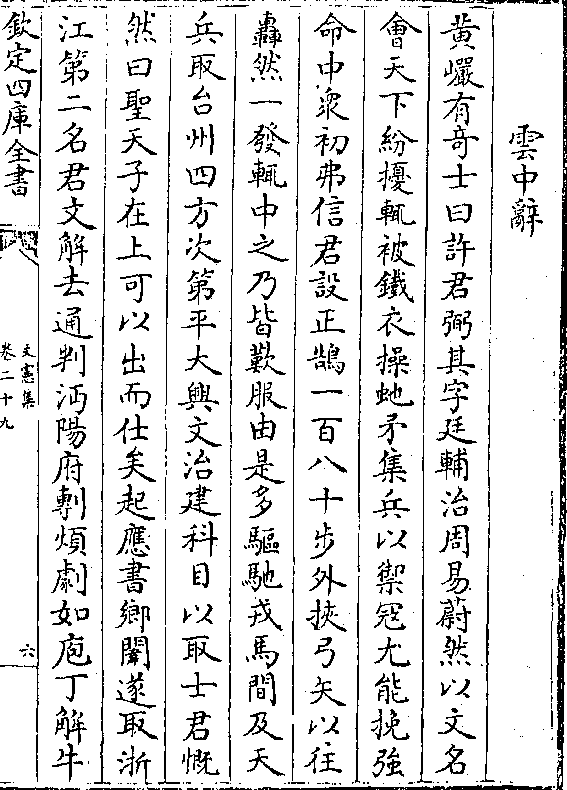 雲中辭
黄巗有竒士曰許君弼其字廷輔治周易蔚然以文名
㑹天下紛擾輒被鐵衣操虵矛集兵以禦冦尤能挽強
命中衆初弗信君設正鵠一百八十步外挾弓矢以往
轟然一發輒中之乃皆歎服由是多驅馳戎馬間及天
兵取台州四方次第平大興文治建科目以取士君慨
然曰聖天子在上可以出而仕矣起應書鄉闈遂取浙
江第二名君文解去通判沔陽府剸煩劇如庖丁解牛
欽定四庫全書
文憲集
卷二十九
六